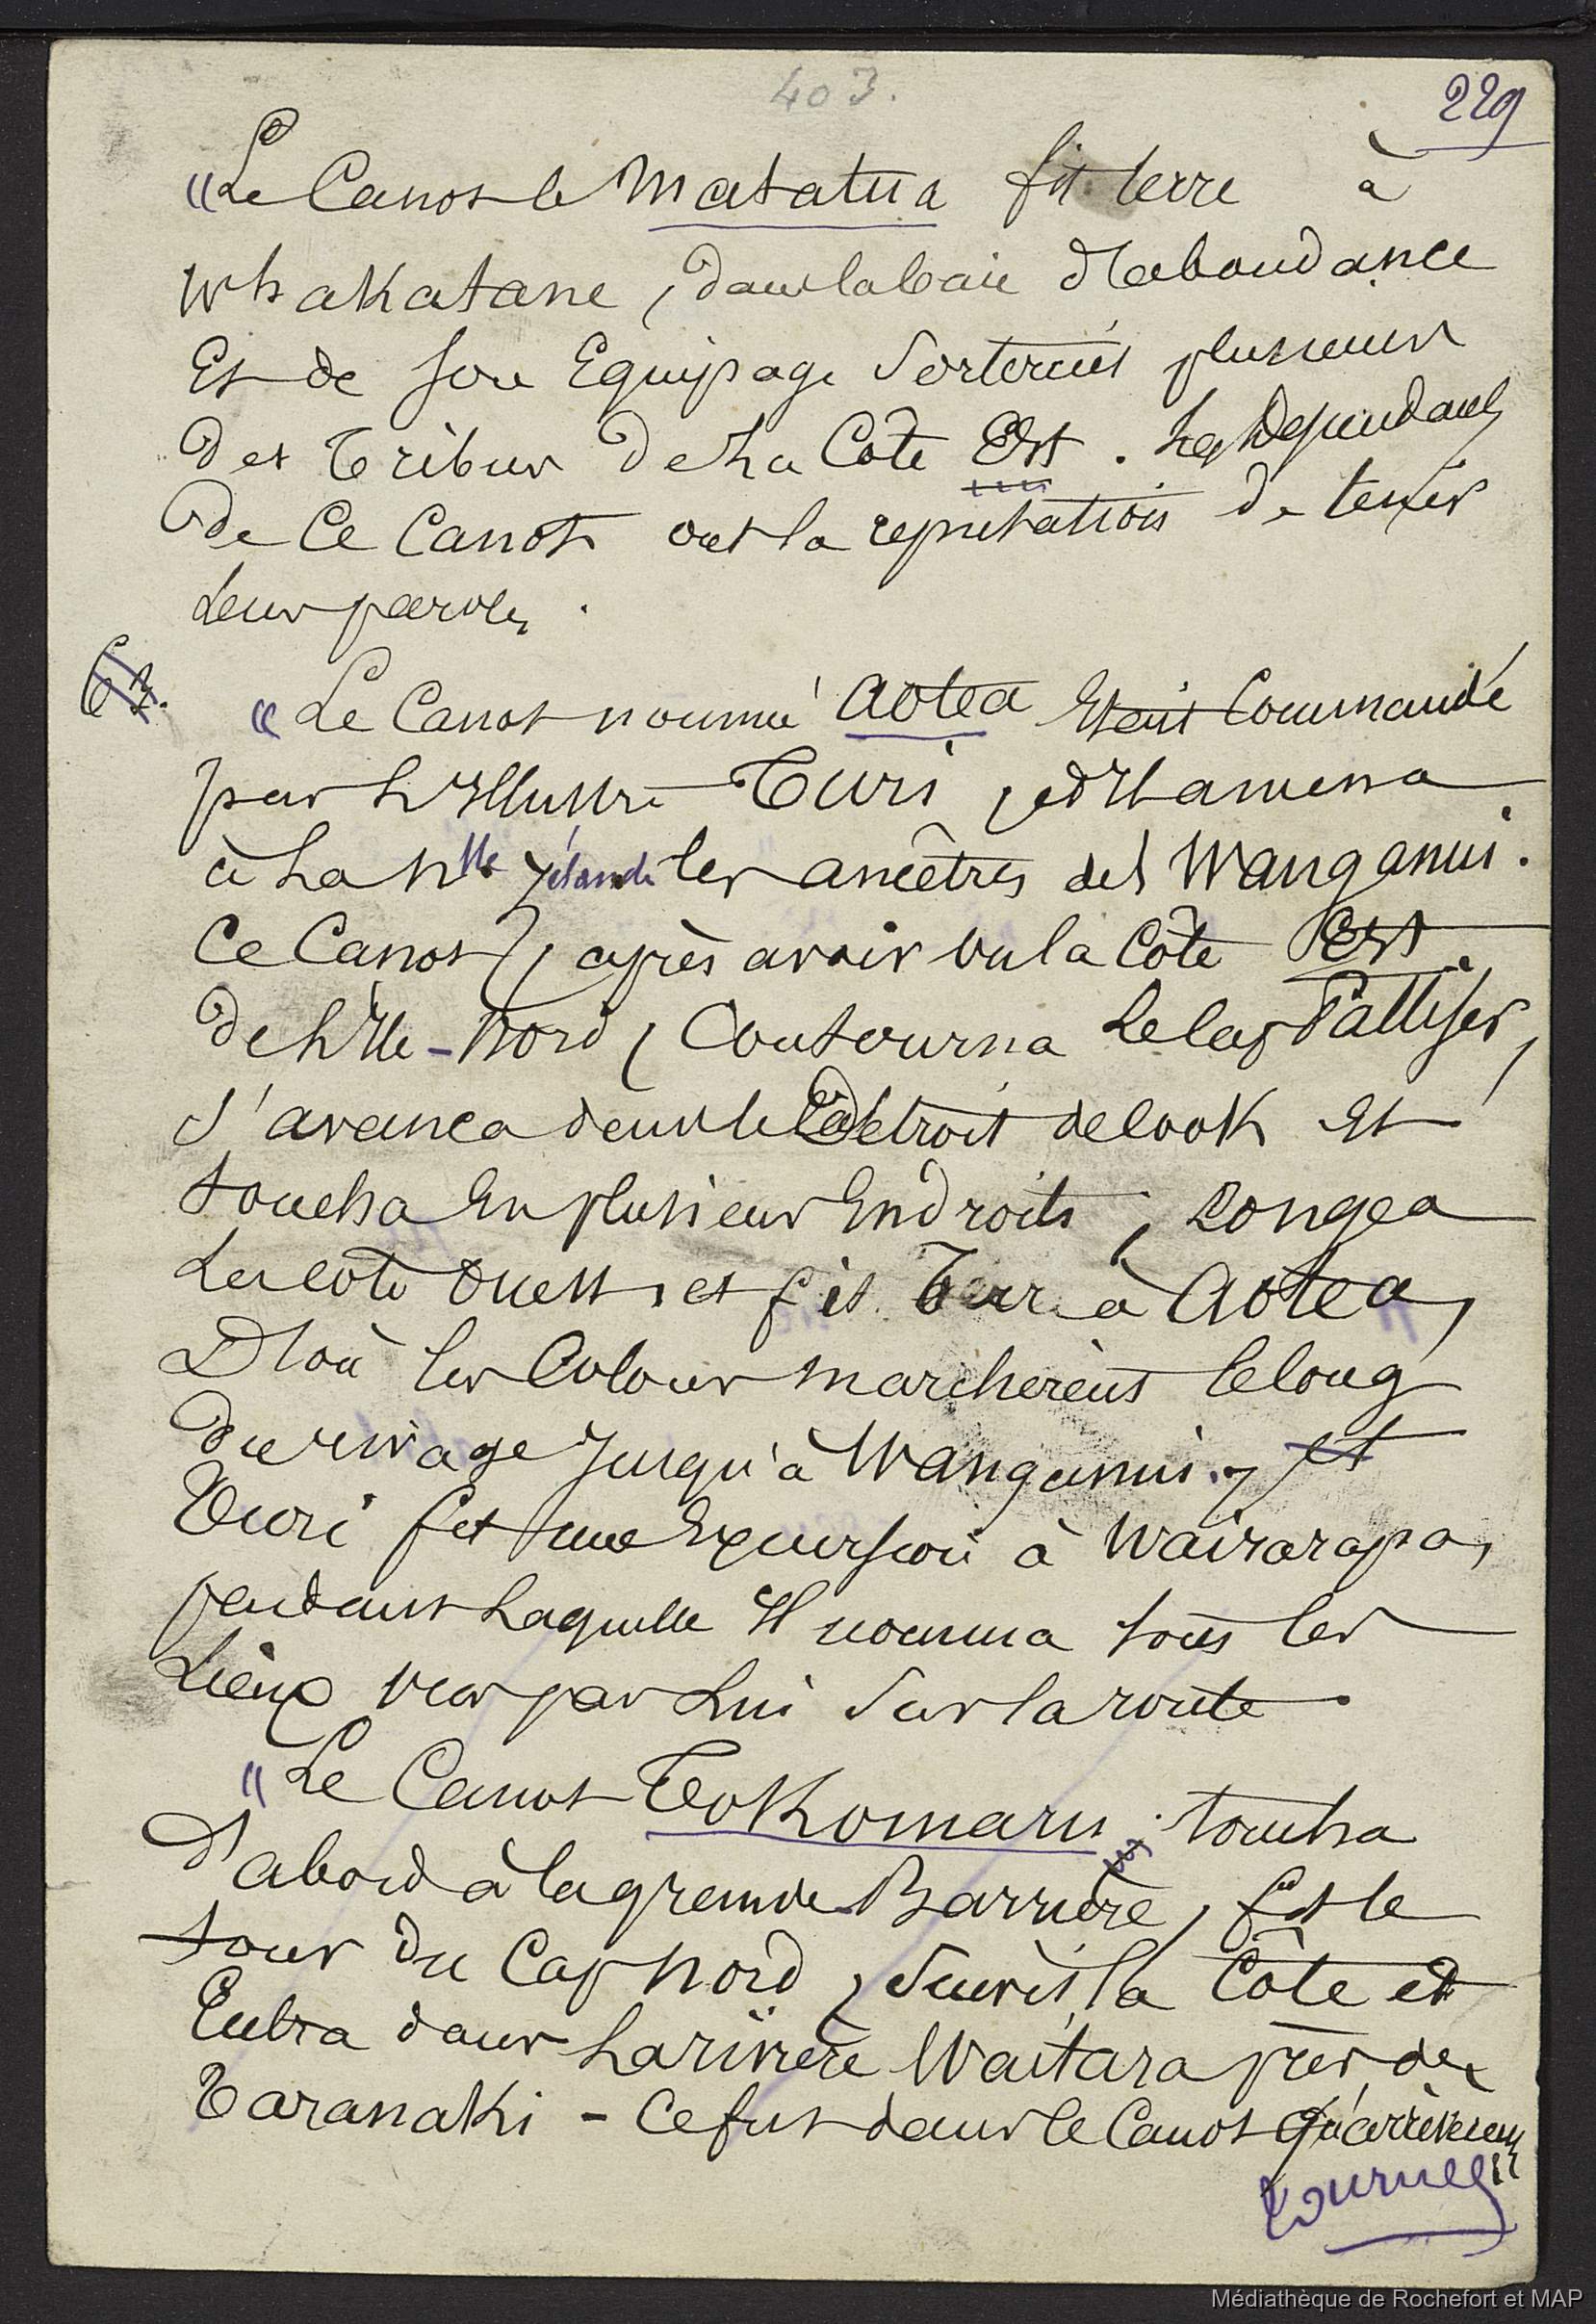 403.
229
"Le Canot le Matatua fit terre à
Whakatane, dans la baie d'abondance
Et de son Equipage Sortirent plusieurs
des Tribus de La Côte Est. Les Dependants
de Ce Canot ont la reputation de tenir
Leur parole.
63.
"Le Canot nommé Aotea Etait Commandé
par L'Illustre Turi, et Il amena
à La Nlle Zélande les ancêtres des Wanganui.
Ce Canot, après avoir vu la Côte Est
de L'Ile-Nord, Contourna Le Cap Palliser,
S'avança dans le Détroit de Cook Et
toucha En plusieurs Endroits, Longea
La Côte Ouest, et fit Terre à Aotea,
D'où les Colons marchèrent le long
du rivage Jusqu'à Wanganui, et
Turi fit une Excursion à Wairarapa,
pendant Laquelle Il nomma tous les
Lieux vus par Lui Sur la route.
"Le Canot Tokomaru toucha
d'abord à la grande Barrière, fit le
tour du Cap Nord, Suivit la Côte et
Entra dans La rivière Waitara près de
Taranaki - Ce fut dans le Canot qu'arrivèrent
tournez
Médiathèque de Rochefort et MAP